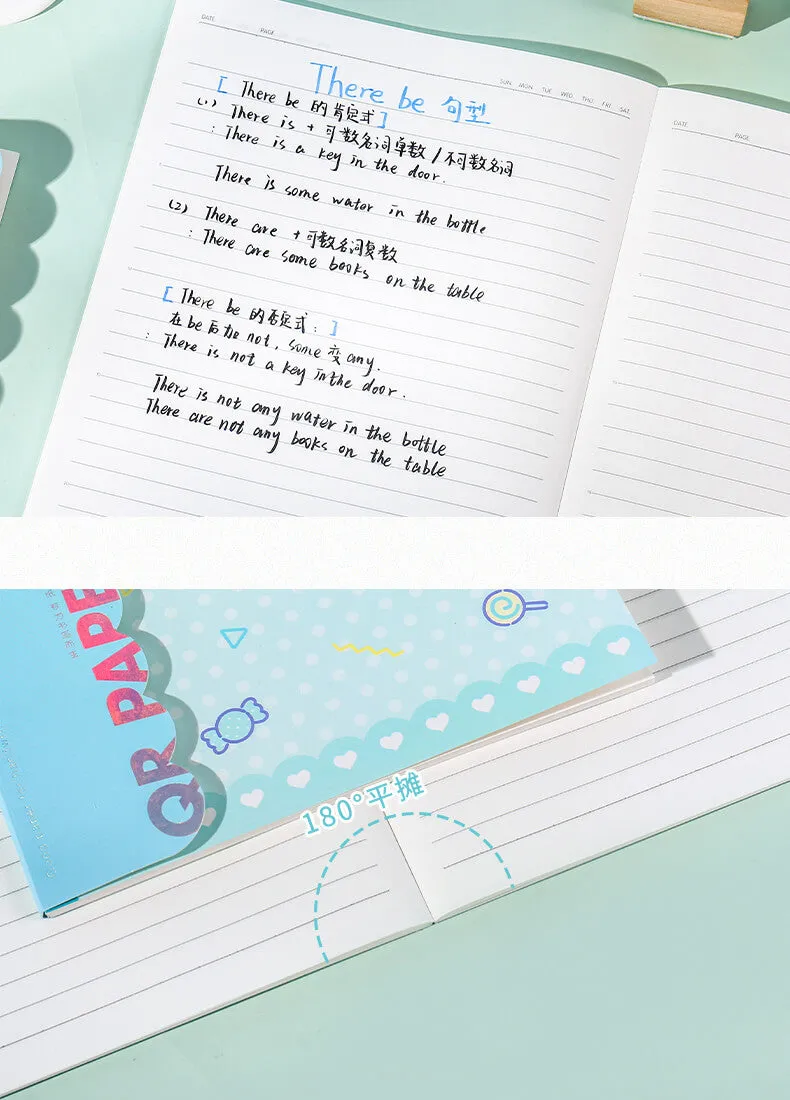 DATE PAGE
SUN. MON. TUE. WED. THU. FRI. SAT.
There be 句型
[ There be 的肯定式 ]
(1) There is + 可数名词单数 / 不可数名词
: There is a key in the door.
There is some water in the bottle
(2) There are + 可数名词复数
: There are some books on the table
[ There be 的否定式 : ]
在be后加 not, some 变 any.
: There is not a key in the door.
There is not any water in the bottle
There are not any books on the table
DATE PAGE
QR PAPE
180°平摊